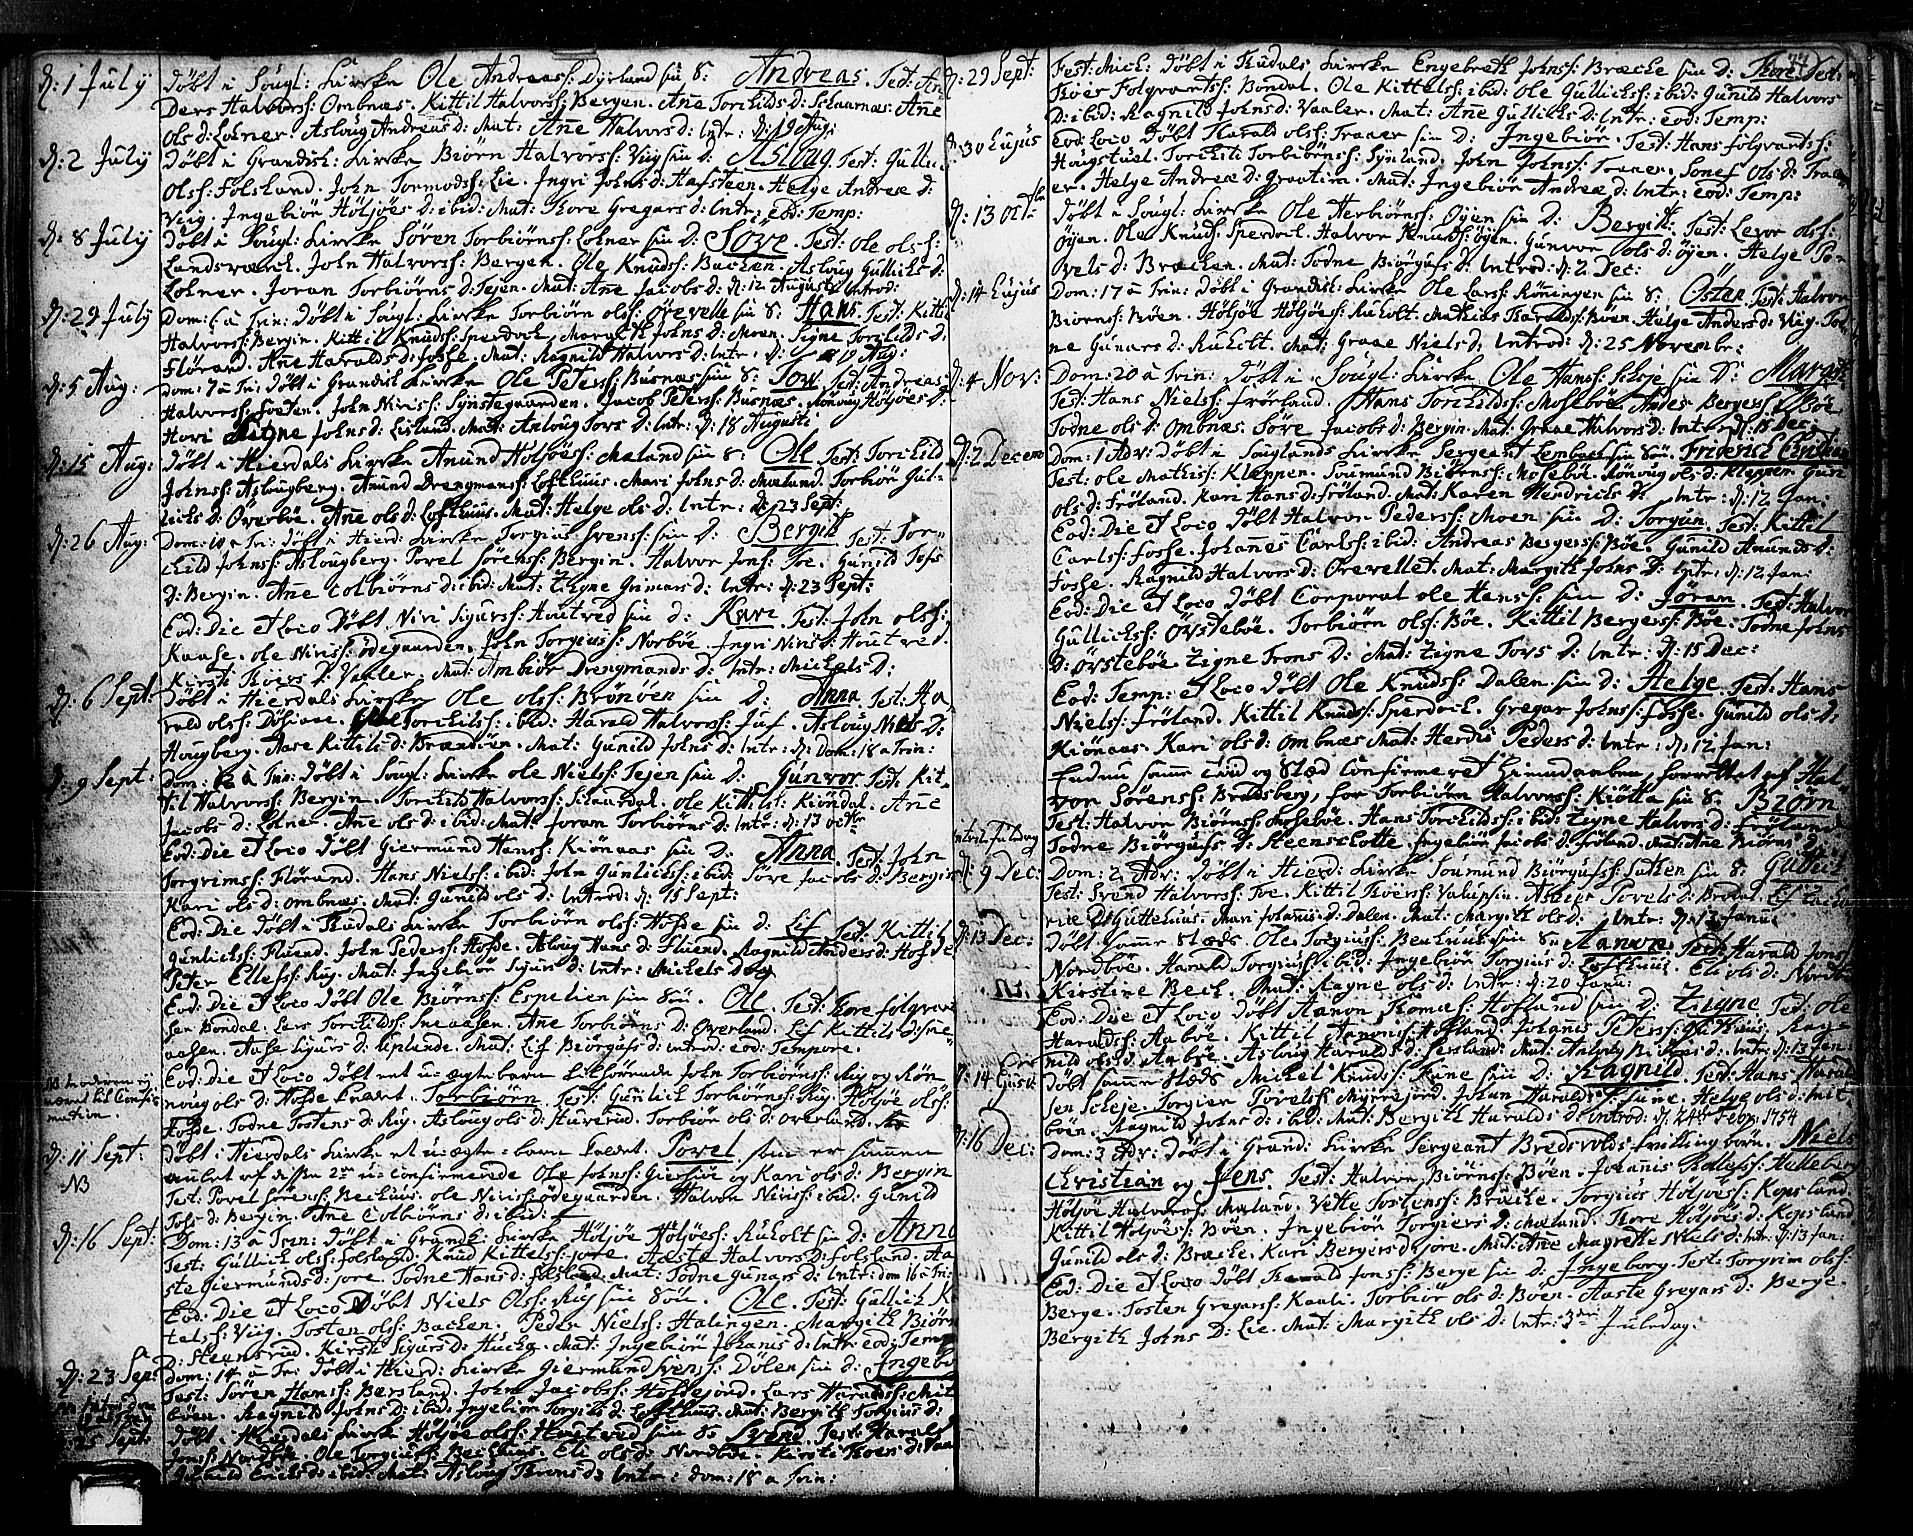 D: 1 July döbt i Sougl: Kirke Ole Andreasf: Dyrland sin S: Andreas. Test: An
ders Halvorsf: Ombnæs. Kittil Halvorsf: Bergen. Añe Torchilds D: Skaarnæs. Añe
Ols d: Lokner. Asloug Andreas d: Mat: Añe Halvors d: Intr: D: 19 Aug:
D: 2 July döbt i Grandsk: Kirke Biörn Halvorsf: Viig sin d: Aslaug. Test: Gullic
Olsf: Folsland. John Tormodsf: Lie. Ingri Johns d: Hafsteen. Helge Andreæ d:
Viig. Ingebiör Höljöes d: ibid: Mat: Thore Gregars d: Intr: eod: Temp:
D: 8 July döbt i Sougl: Kirke Sören Torbiörnsf: Lokner sin d: Sove. Test: Ole olsf:
Landsværck. John Halvorsf: Bergen. Ole Knudsf: Bachen. Asloug Gullichs d:
Lokner. Joran Torbiörns d: Tejen. Mat: Añe Jacobs d: D: 12 Augusti Introd:
D: 29 July Dom: 6 a Trin: döbt i Sougl: Kirke Torbiörn olsf: Örevelle sin S: Hans. Test: Kittil
Halvorsf: Bergin. Kittil Knudsf: Sperdoch. Margeth Johns d: Moen. Signe Torchilds d:
Flörand. Añe Haralds d: fosse. Mat: Ragnild Halvors d: Intr: D: 19 Aug:
D: 5 Aug: dom: 7 a Tri: döbt i Grandsk Kirke Ole Petersf: Busnæs sin S: Tov. Test: Andreas
Halvorsf: Foeten. John Nirisf: Synstegaarden. Jacob Petersf: Busnæs. Rönvig Höljöes d:
Hovi Signe Johns d: Lisland. Mat: Asloug Tovs d: Intr: D: 18 Augusti
D: 15 Aug: döbt i Hierdals Kirke Amund Höljöesf: Mæland sin S: Ole Test: Torchild
Johnsf: Aslougberg. Amund Drengmansf: Lofthuus. Mari Johns d: Mæland. Torbiör Gul-
lichs d: Överböe. Añe ols d: Lofthuus. Mat: Helge ols d: Intr: D: 23 Sept:
D: 26 Aug: Dom: 10 a Tri: döbt i Hierd: Kirke Torgius Svensf: sin D: Bergit Test: Tor-
child Johnsf: Aslougberg. Povel Sörensf: Bergin. Halvor Jonsf: Foe. Gunild Tofs
d: Bergin. Añe Colbiörns d: ibid: Mat: Zigne Gunnars d: Intr: D: 23 Sept:
Eod: Die et Loco döbt Niri Sigursf: Houtved sin d: Kari Test: John olsf:
Kaase. Ole Nirisf: Ödegaarden. John Torgiusf: Norböe. Ingri Niris d: Houtved.
Kirsti Roers d: Vaaler. Mat: Ambiör Drengmands d: Intr: Michels D:
D: 6 Sept: döbt i Hierdals Kirke Ole olsf: Brönöen sin d: Anna Test: Ha
rald olsf: Torchilsf: ibid: Harald Halvorsf: Juf. Asloug Niels d:
Hougberg. Aase Kittils d: Mat: Gunild Johns d: Intr: D: Dom: 18 a Trin:
D: 9 Sept: dom: 12 a Trin: döbt i Sougl: Kirke Ole Nielsf: Tejen sin d: Gunvor Test: Kit-
til Halvorsf: Bergin. Torchild Halvorsf: Skaardal. Ole Kittilsf: Kiöndal. Añe
Jacobs d: Lokner. Añe ols d: ibid: Mat: Joran Torbiörns d: Intr: D: 13 octbr
Eod: Die et Loco döbt Giermund Hansf: Kiönaas sin d: Anna. Test: John
Torgrimsf: Flörand. Hans Nielsf: ibid: John Gunlichsf: ibid: Söre Jacobs d: Bergin
Kari ols d: ombnæs. Mat: Gunild ols d: Introd: D: 15 Sept:
Eod: Die döbt i Tudals Kirke Torbiörn olsf: Hofde sin d: Lif Test: Kittil
Gunlichsf: Fluend. John Pedersf: Hofde. Asloug Hans d: Fluend. Ragnild Anders d: Hofde
Peter Ellefsf: Ruy. Mat: Ingebiör Sigurs d: Intr: Michels dag
Eod: Die et Loco döbt Ole Biörnsf: Espelien sin Sön. Ole. Test: Thore folgvar
sen Bondal. Lars Torchildsf: Sneaasen. Añe Torbiörns D: Overland. Lif Kittils d: Sne-
aasen. Aase Sigurs d: Mat: Lif Biörgufs d: introd: eod: Tempore.
NB Moderen ej
været til Confir
mation. Eod: Die et Loco döbt et u-ægte barn John Torbiörnsf: Ruy og Rön
noug ols d: Hofde kaldt Torbiörn. Test: Gunlich Torbiörnsf: Ruy. Höljöe olsf:
Fosse. Todne Tostens d: Ruy. Asloug ols d: Huverud. Torbiör ols d: overland.
D: 11 Sept: NB döbt i Hierdals Kirke et u-ægte barn kaldet Povel som er sammen
avlet af desse 2de u-confirmerede Ole Johnsf: og Kari ols d: Bergin
Test: Povel Sörensf: Bechuus. Ole Nirisf: ödegaarden. Halvor Nirisf: ibid: Gunild
Tofs d: Bergin. Añe Colbiörns d: ibid:
D: 16 Sept: Dom: 13 a Trin: döbt i Grands: Kirke Höljöe Höljöesf: Rukolt sin d: Anna
Test: Gullich olsf: folsland. Knud Kittelsf: jore. Aaste Halvors d: folsland. Aa
ste Giermunds d: jore. Todne Hans d: folsland. Mat: Todne Gunars d: Intr: dom 16 a Tri:
Eod: Die et Loco Döbt Niels Olsf: Ruy sin Sön. Ole. Test: Gullich K
talsf: Viig. Tosten olsf: Bachen. Peder Nielsf: Halingen. Margith Biörn
D: Steensrud. Kirsti Sigurs d: Mat: Ingebiör Johanis d: Intr eod: Temp
D: 23 Sep: dom: 14 a Tri: döbt i Hierd: Kirke Giermund Svensf: Dölen sin d: Ingebo
Test: Sören Hansf: Bersland. John Jacobsf: Hoffejord. Lars Haraldsf: Mit
böen. Ragnild Johns d: ibid: Ingebiör Torgius d: Lofthuus. Mat: Bergith Torgius d:
25 Sept: döbt i Hierdals Kirke Höljöe olsf: Houtved sin S: Svend. Test: Harald
Jonsf: Nordböe. Ole Torgiusf: Bechuus. Eli ols d: Nordböe. Kirsti Roers d: Vaa
Gunild Erichs d: ibid: Mat: Asloug Throns d: Intr: dom: 18 a Trin:
74
D: 29 Sept: Fest: Mich: döbt i Tudals Kirke Engebreth Johnsf: Bræche sin d: Thore Test:
Roer Folgvartsf: Bondal. Ole Kittelsf: ibid: Ole Gullichsf: ibid: Gunild Halvors
D: ibid: Ragnild Johns d: Vaaler. Mat: Añe Gullichs d: Intr: eod: Temp:
D: 30 Eujus Eod: Loco Döbt Harald olsf: Traaer sin D: Ingebiör. Test: Hans folgvartsf:
Hougstuel. Torchild Torbiörnsf: Synland. John Johnsf: Traaer. Sonef Ols d: Traa
er. Helge Andreæ d: Graatin. Mat: Ingebiör Andreæ d: Intr: eod: Temp:
D: 13 octbr döbt i Sougl: Kirke Ole Herbiörnsf: Öyen sin D: Bergit. Test: Levor olsf:
Öyen. Ole Knudsf: Sperdoch. Halvor Knudsf: öyen. Gunvor ols d: öyen. Helge Po-
vels d: Bræcken. Mat: Todne Biörgufs d: Introd: D: 2 Dec:
D: 14 Eujus Dom: 17 a Trin: döbt i Grandsk: Kirke Ole Larsf: Röningen sin S: Östen Test: Halvor
Biörnsf: Böen. Höljöe Höljöesf: Rukolt. Mathias Haraldsf: Böen. Helge Anders d: Viig. Tod
ne Gunars d: Rukolt. Mat: Graae Niels d: Introd: D: 25 Novembr:
D: 4 Nov: Dom: 20 a Trin: döbt i Sougl: Kirke Ole Hansf: Skoje sin D: Margit
Test: Hans Nielsf: Frörland. Hans Torchildsf: Moseböe. Anders Bergersf: Böe
Todne ols d: Ombnæs. Söre Jacobs d: Bergin. Mat: Graae Halvors d: Introd: D: 15 Dec:
D: 2 Decem Dom: 1 Adv: döbt i Souglands Kirke Sergeant Lembach sin Sön. Friderich Christian
Test: Ole Mathisf: Kleppen. Sörmund Biörnsf: Moseböe. Rönvig ols d: Kleppen. Guri
ols d: Fröland. Kari Hans d: Fröland. Mat: Karen Hendrichs d: Intr: D: 12 Jan:
Eod: Die et Loco döbt Halvor Pedersf: Moen sin D: Torgun. Test: Kittil
Carlsf: fosse. Johannes Carlsf: ibid: Andreas Bergersf: Böe. Gunild Amunds d:
Fosse. Ragnild Halvors d: Örevellet. Mat: Margith Johns D: Intr: D: 12 Jan:
Eod: Die et Loco döbt Corporal Ole Hansf: sin d: Jöran. Test: Halvor
Gullichsf: Övsteböe. Torbiörn olsf: Böe. Kittil Bergersf: Böe. Todne Johns
D: Övsteböe Zigne Trons d: Mat: Zigne Tovs d: Intr: D: 15 Dec:
Eod: Temp: et Loco döbt Ole Knudsf: Dalen sin d: Helge. Test: Hans
Nielsf: Fröland. Kittil Knudsf: Sperdoch. Gregar Johnsf: Fosse. Gunild ols d:
Kiönaas. Kari ols d: ombnæs Mat: Herdis Peders d: Intr: D: 12 Jan:
Endnu samme tiid og Stæd Confirmeret hiemdaaben, forrettet af Hal
vor Sörensf: Bradsberg, for Torbiörn Halvorsf: Kiötta sin S. Biörn
Test: Halvor Biörnsf: Moseböe. Hans Torchildsf: ibid: Zigne Halvors d: Fröland
intr: 2 Juledag Todne Biörgufs d: Steenschotte. Ingebiör Jacobs d: Fröland. Mat: Añe Biörns d:
D: 9 Dec: Dom: 2 Adv: döbt i Hierd: Kirke Sörmund Biörgufsf: sin S: Guttich
Test: Svend Halvorsf: Foe. Kittil Thoersf: Valupsin. Povels d:
Gullehuus. Mari Johanis d: Dalen. Mat: Margith ols d: Intr: D: 13 Januæ
D: 13 Dec: döbt samme Stæds Ole Torgiusf: Bechuus sin S: Aanon Test: Harald Jonsf:
Nordböe. Harald Torgiusf: ibid: Ingebiör Torgius d: Lofthuus. Eli ols d: Nordböe
Kirstine Bech. Mat: Ragne ols d: Intr: D: 20 Janu:
Eod: Die et Loco döbt Aanon Thomæsf: Hofland sin d: Zigne Test: Ole
Haraldsf: Aaböe. Kittil Aanonsf: Hofland. Johanis Petersf: Ragn
nild ols d: Aaböe. Asloug Haralds d: Mat: d: Intr: D: 13 Jan:
D: 14 Ejusd: döbt samme Stæds Michel Knudsf: sin d: Ragnild. Test: Hans Harald
sen Skeje. Torgier Povelsf: Myrrejord. Johan Haraldsf: Helge ols d: Mit
böen. Ragnild Johns d: ibid: Mat: Bergith Haralds d: introd: D: 24 Febr: 1754
D: 16 Dec: Dom: 3 Adv: döbt i Grand: Kirke Sergeant Bredsvolds tvilling børn. Niels
Christian og Jens. Test: Halvor Biörnsf: Böen. Johanis Rollefsf:
Höljöe Halvorsf: Mæland. Vetle Tostensf: Bræcke. Torgius Höljöesf: Kopsland
Kittil Höljöesf: Böen. Ingebiör Torgiers d: Mæland. Thore Höljöes d: Kopsland
Gunild ols d: Bræche. Kari Bergers d: jore. Mat: Añe Magrethe Niels d: Intr: D: 13 Jan:
Eod: Die et Loco döbt Harald Jonsf: Berge sin d: Ingeborg. Test: Torgrim olsf:
Berge. Tosten Gregarsf: Kaasi. Torbiör ols d: Böen. Aaste Gregars d: Berge.
Bergith Johns D: Lie. Mat: Margith ols d: Intr: 3die Juledag.